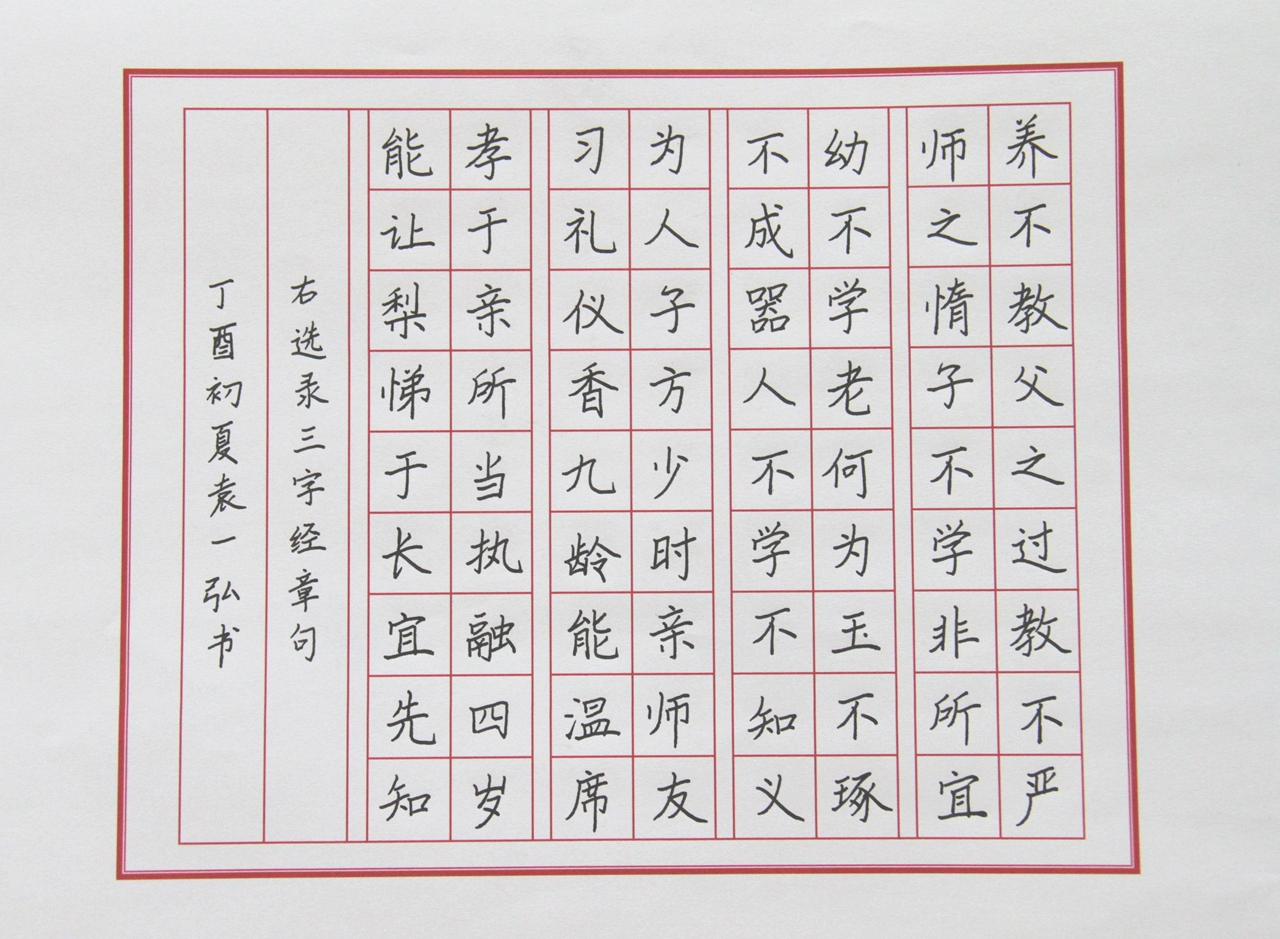 养不教父之过教不严
师之惰子不学非所宜
幼不学老何为玉不琢
不成器人不学不知义
为人子方少时亲师友
习礼仪香九龄能温席
孝于亲所当执融四岁
能让梨悌于长宜先知
右选录三字经章句
丁酉初夏袁一弘书